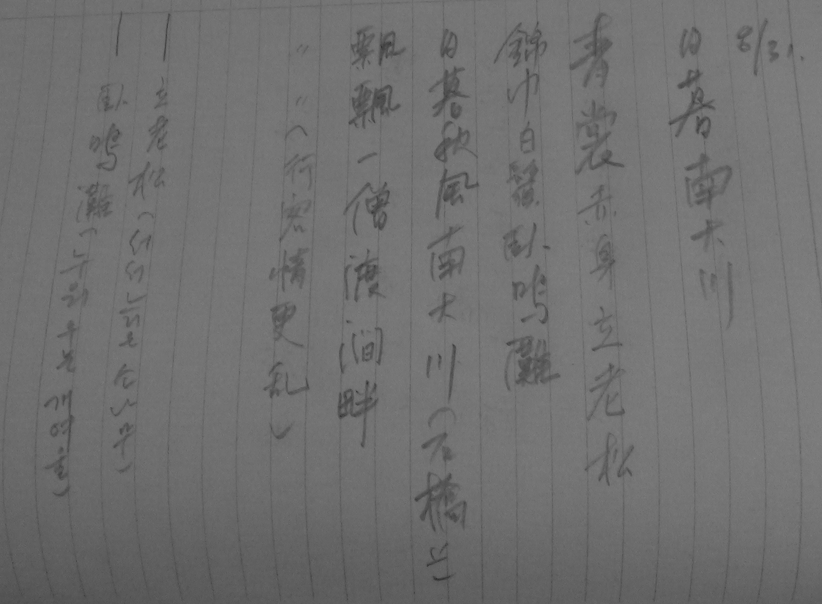 8/31.
日暮南大川
青裳赤身立老松
錦巾白鬚臥鳴灘
日暮秋風南大川(石橋上)
飄飄一僧渡澗畔
〃 〃(何客情更乱)
— 立老松(서서 늙은 소나무)
— 臥鳴灘(누워 우는 개여울)